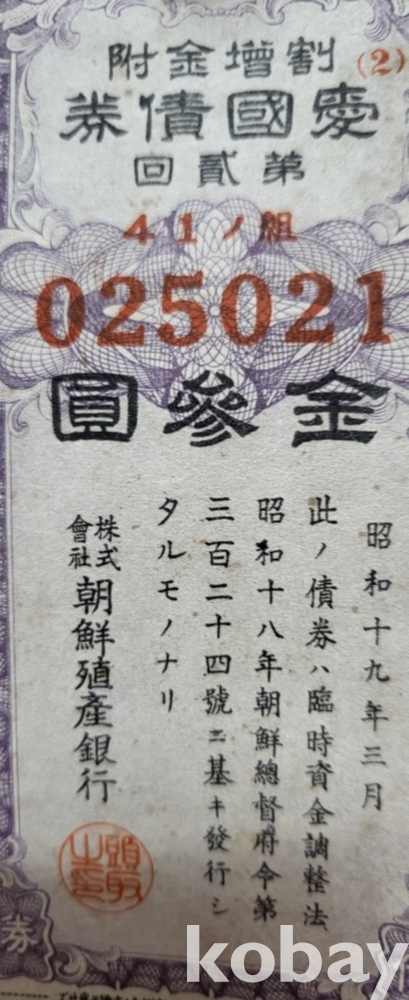 割增金附
(2)
愛國債券
第貳回
41ノ組
025021
金參圓
昭和十九年三月
此ノ債券ハ臨時資金調整法
昭和十八年朝鮮總督府令第
三百二十四號ニ基キ發行シ
タルモノナリ
株式會社朝鮮殖產銀行
頭取之印
券
kobay